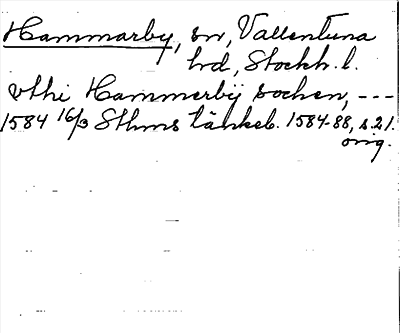 Hammarby, sn, Vallentuna
hd, Stockh. l.
vthi Hammerbÿ sochen, ---
1584 16/3 Sthms tänkeb. 1584-88, s. 21.
orig.